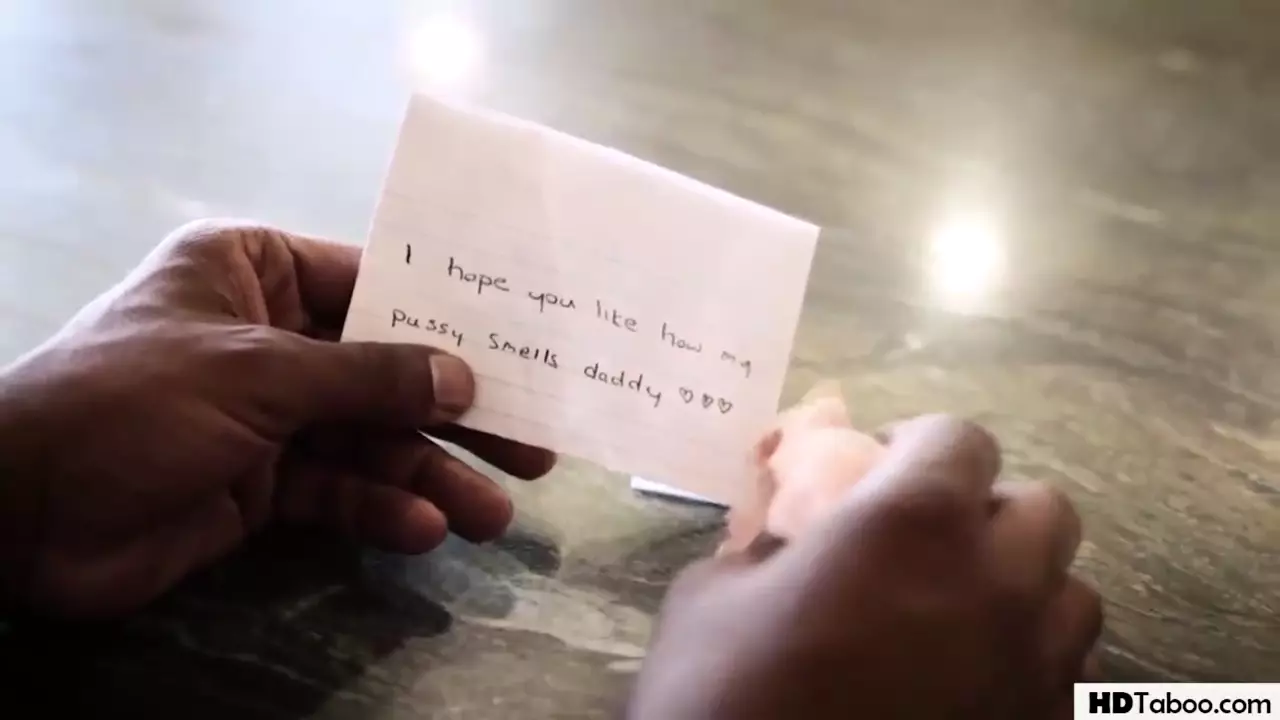 I hope you like how my
pussy smells daddy ♡♡♡
HDTaboo.com